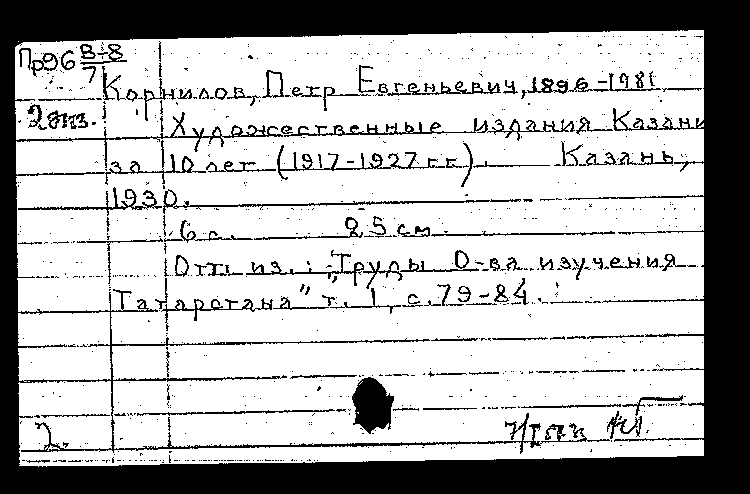 Пр96 В-8/7
Корнилов, Петр Евгеньевич, 1896-1981
2 экз. Художественные издания Казани
за 10 лет (1917-1927 гг). Казань,
1930.
6 с. 25 см.
Отт. из.: „Труды О-ва изучения
Татарстана" т. 1, с. 79-84.
2